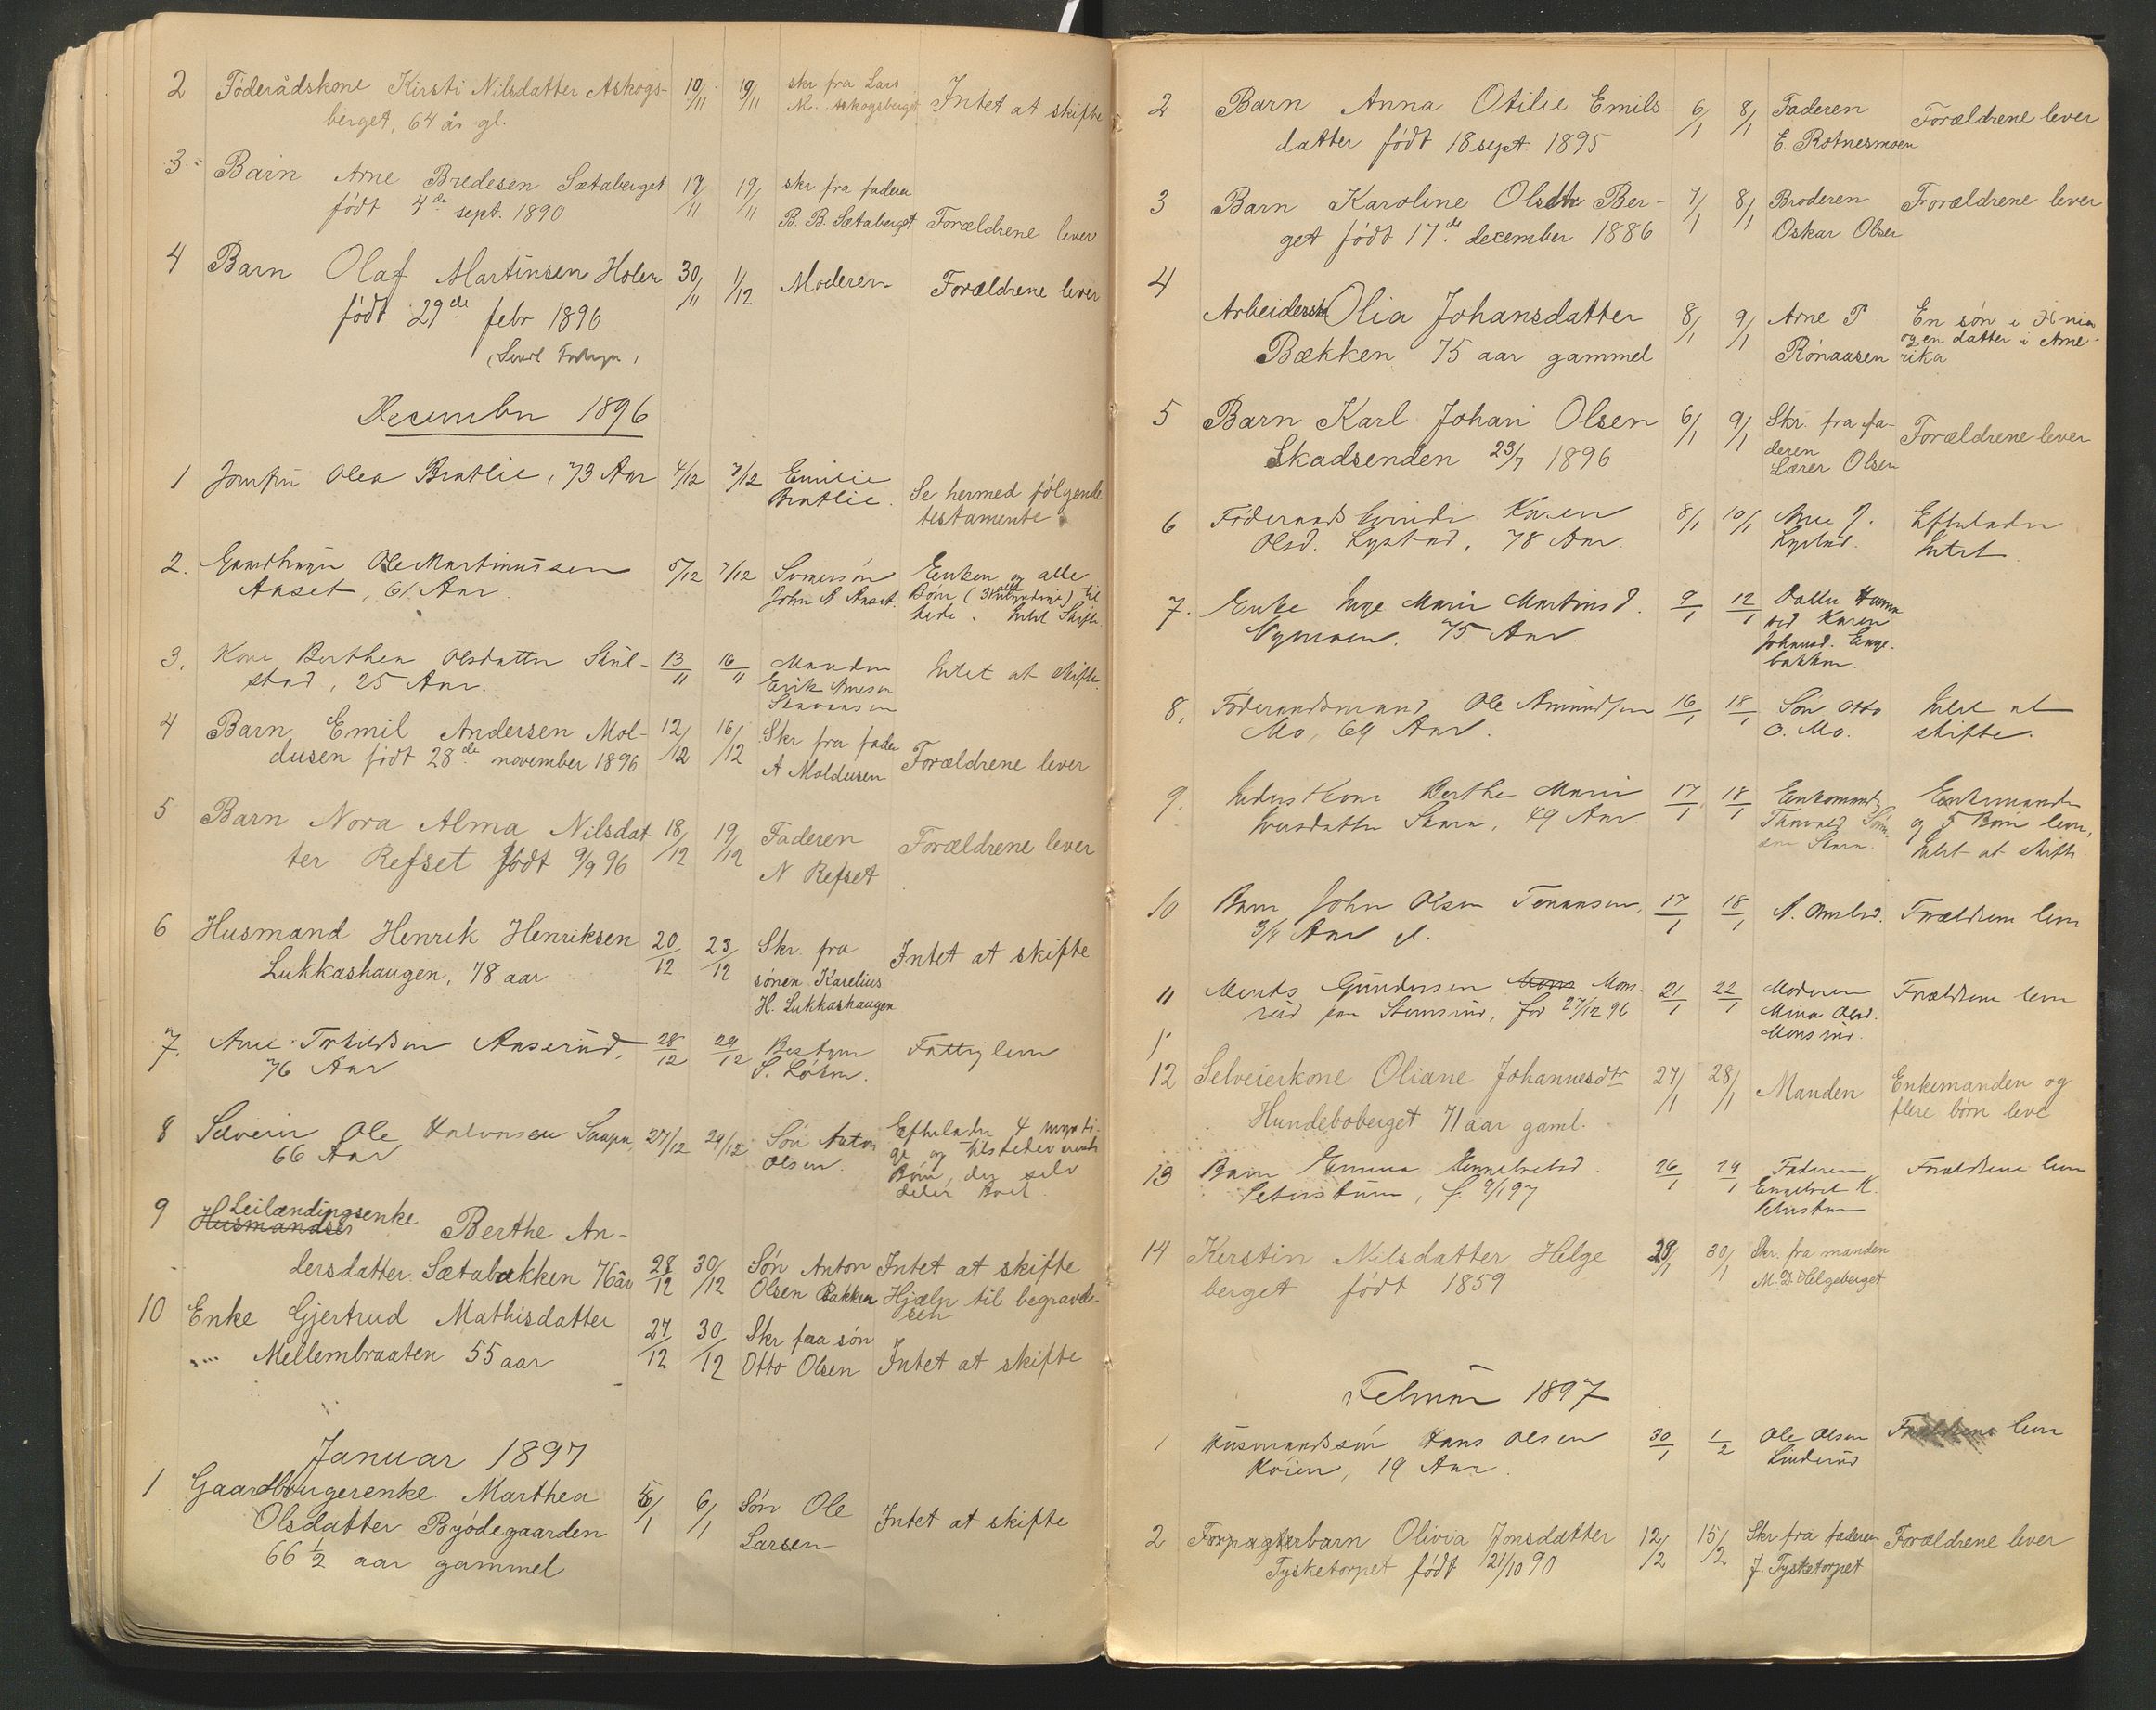 2 Föderådskone Kirsti Nilsdatter Askogs- 10/11 19/11 skr fra Lars
berget, 64 år gl. N. Askogsberget Intet at skifte
3 Barn Arne Bredesen Sætaberget 17/11 19/11 skr fra faderen
födt 4de sept. 1890 B. B. Sætaberget Forældrene lever
4 Barn Olaf Martinsen Holen 30/11 1/12 Moderen Forældrene lever
födt 29de febr 1896
December 1896
1 Jomfru Olea Bratlie, 73 Aar 4/12 7/12 Emilie
Bratlie. Se hermed fölgende
testamente
2. Gaardbruger Ole Martinussen 5/12 7/12 Svigersön Enken og alle
Aaset, 61 Aar John A. Aaset. Börn
3. Kone Berthea Olsdatter Skul- 13/11 16/11 Manden Intet at skifte.
stad, 25 Aar. Erik
4 Barn Emil Andersen Mol- 12/12 16/12 Skr fra fader
dusen födt 28de november 1896 A Moldusen Forældrene lever
5 Barn Nora Alma Nilsdat- 18/12 19/12 Faderen Forældrene lever
ter Refset födt 9/9 96 N Refset
6 Husmand Henrik Henriksen 20/12 23/12 Skr. fra Intet at skifte
Lukkashaugen, 78 aar sönen Karelius
H. Lukkashaugen
7. Arne Aaserud, 28/12 29/12 Fattiglem
76 Aar
8 Selveier Ole Halvorsen 27/12 29/12 Sön Anton Efterlader 4 myndi-
66 Aar. Olsen. ge og tilstedeværende
Börn, der selv
deler Boet.
9 Leilændingsenke
Husmandsen Berthe An-
dersdatter Sætabakken 76 år 28/12 30/12 Sön Anton Intet at skifte
Olsen Bakken Hjælp til begravel-
sen
10 Enke Gjertrud Mathisdatter 27/12 30/12 Skr fra sön
Mellembraaten 55 aar Otto Olsen Intet at skifte
Januar 1897
1 Gaardbrugerenke Marthea 5/1 6/1 Sön Ole
Olsdatter Byödegaarden Larsen Intet at skifte
66 1/2 aar gammel
2 Barn Anna Otilie Emils- 6/1 8/1 Faderen Forældrene lever
datter födt 18 sept. 1895 E. Rotnesmoen
3 Barn Karoline Olsdtr Ber- 7/1 8/1 Broderen Forældrene lever
get födt 17de december 1886 Oskar Olsen
4
Arbeidersk Olia Johansdatter 8/1 9/1 Arne P En sön i Xnia
og en datter i Ame-
Bækken 75 aar gammel Rönaasen rika
5 Barn Karl Johan Olsen 6/1 9/1 Skr. fra fa- Forældrene lever
Skadsenden 23/7 1896 deren
Lærer Olsen
6 Föderaadskvinde Karen 8/1 10/1 Efterlader
Olsd. Lystad, 78 Aar. Lystad. Intet.
7. Enke Inge Marie Martinsd. 9/1 12/1 Datter
Nymoen, 75 Aar. ved Karen
Johansd. Enge-
bakken.
8. Föderaadsmand Ole Amundsen 16/1 18/1 Sön Otto Intet at
Mo, 69 Aar. O. Mo. skifte.
9. Inderstkone Berthe Marie 17/1 18/1 Enkemand Enkemanden
Iversdatter Skara, 49 Aar. Thorvald og 5 Börn lever,
Skara. Intet at skifte
10 Barn John Olsen 17/1 18/1 Forældrene lever
3/4 Aar gl.
11 Gundersen Mons- 21/1 22/1 Moderen Forældrene lever
rud fra Stensrud, fød 27/12 96 Mina Olsd.
Monsrud.
12 Selveierkone Oliane Johannesdtr 27/1 28/1 Manden Enkemanden og
Hundeboberget 71 aar gaml. flere börn leve
13 Barn Emma Engebretsd. 26/1 29/1 Faderen Forældrene lever
f. 9/1 97 Engebret K.
14 Kerstin Nilsdatter Helge 29/1 30/1 Skr. fra manden
berget födt 1859 M. D. Helgeberget
Februar 1897
1 Husmandssön Hans Olsen 30/1 1/2 Ole Olsen Forældrene lever
Moien, 19 Aar. Linderud
2 Forpagterbarn Olivia Jonsdatter 12/2 15/2 Skr fra faderen Forældrene lever
Tysketorpet födt 21/10 90 J. Tysketorpet